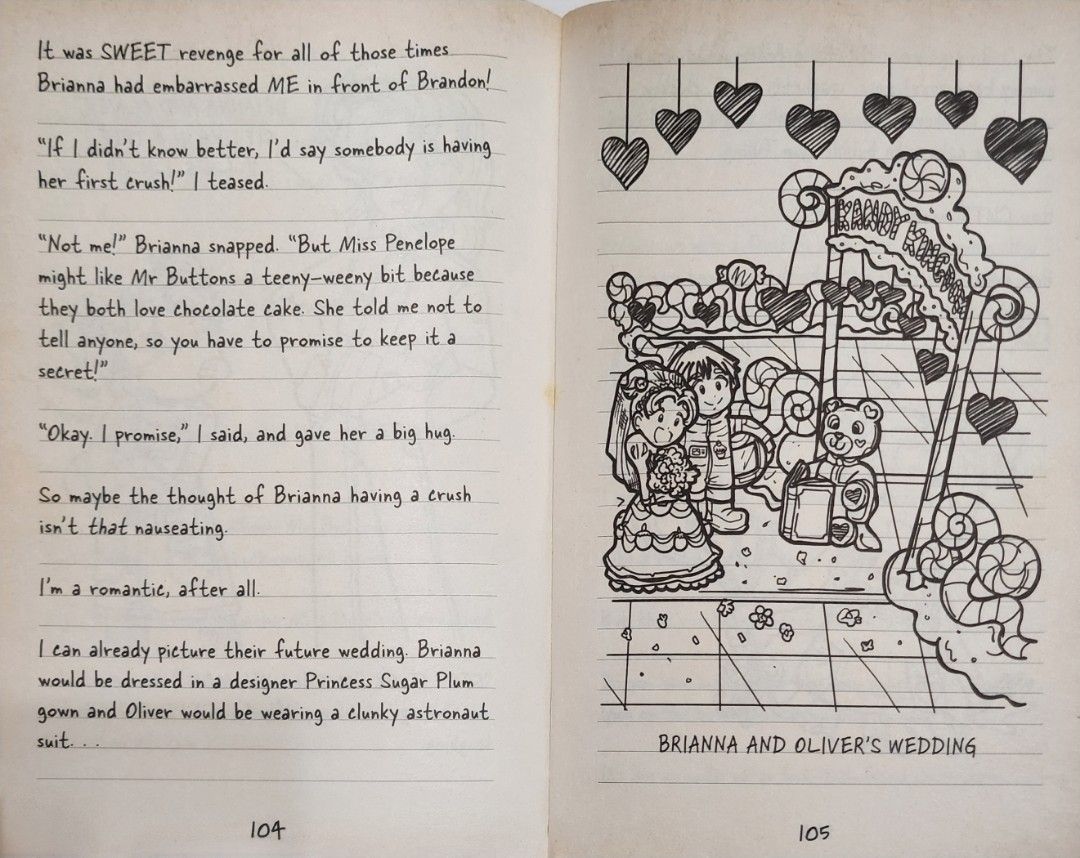 It was SWEET revenge for all of those times
Brianna had embarrassed ME in front of Brandon!
“If I didn’t know better, I’d say somebody is having
her first crush!” I teased.
“Not me!” Brianna snapped. “But Miss Penelope
might like Mr Buttons a teeny-weeny bit because
they both love chocolate cake. She told me not to
tell anyone, so you have to promise to keep it a
secret!”
“Okay. I promise,” I said, and gave her a big hug.
So maybe the thought of Brianna having a crush
isn’t that nauseating.
I’m a romantic, after all.
I can already picture their future wedding. Brianna
would be dressed in a designer Princess Sugar Plum
gown and Oliver would be wearing a clunky astronaut
suit. . .
104
KANDY KINGDOM
BRIANNA AND OLIVER’S WEDDING
105